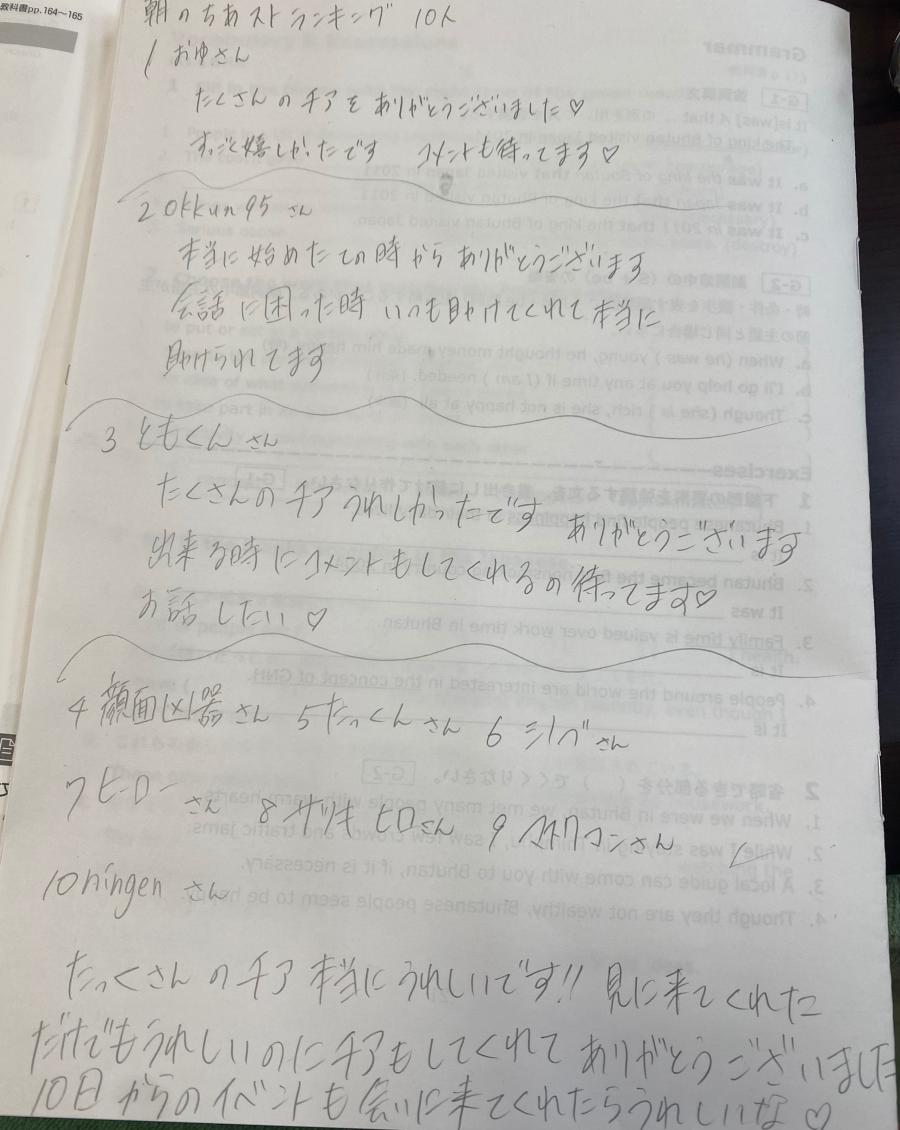 教科書pp.164~165
朝のちあストランキング 10人
1 おゆさん
たくさんのチアをありがとうございました♡
すっごく嬉しかったです コメントも待ってます♡
2 Okkun95 さん
本当に始めたての時からありがとうございます
会話に困った時 いつも助けてくれて本当に
助けられてます
3 ともくん さん
たくさんのチアうれしかったです ありがとうございます
出来る時にコメントもしてくれるの待ってます♡
お話したい♡
4 顔面凶器さん 5 たっくんさん 6 シバさん
7 ヒーローさん 8 サツキ ヒロさん 9 ストワマンさん
10 ningen さん
たっくさんのチア本当にうれしいです!! 見に来てくれた
だけでもうれしいのにチアもしてくれてありがとうございました
10日からのイベントも会いに来てくれたらうれしいな♡